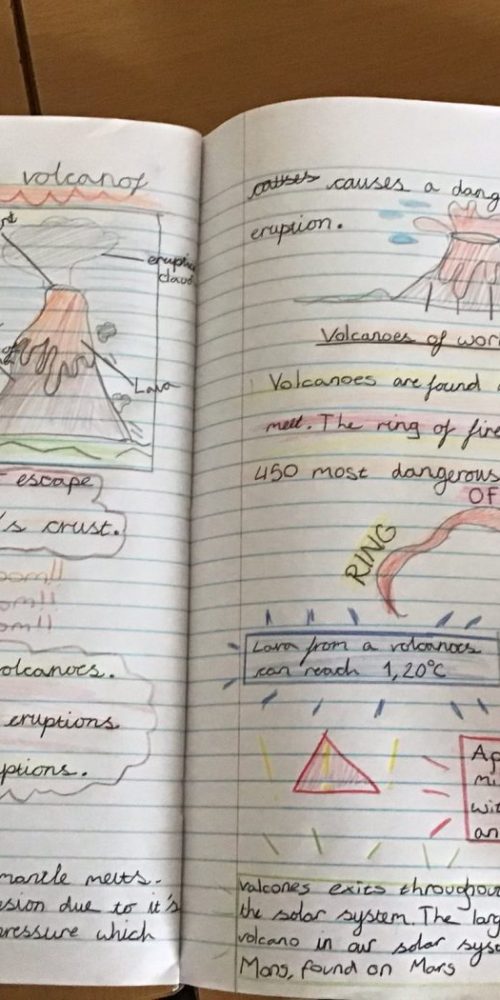 volcanof
eruption
cloud
Lava
escape
's crust.
oom!!
om!!
om!!
olcanoes.
eruptions
ptions.
mantle melts.
sion due to it's
ressure which
causes causes a dang
eruption.
Volcanoes of wor
Volcanoes are found
melt. The ring of fire
450 most dangerous
OF
RING
Lava from a volcanoes
can reach 1,20°C
Ap
mi
wit
an
valcones exits throughout
the solar system. The larg
volcano in our solar syst
Mons, found on Mars